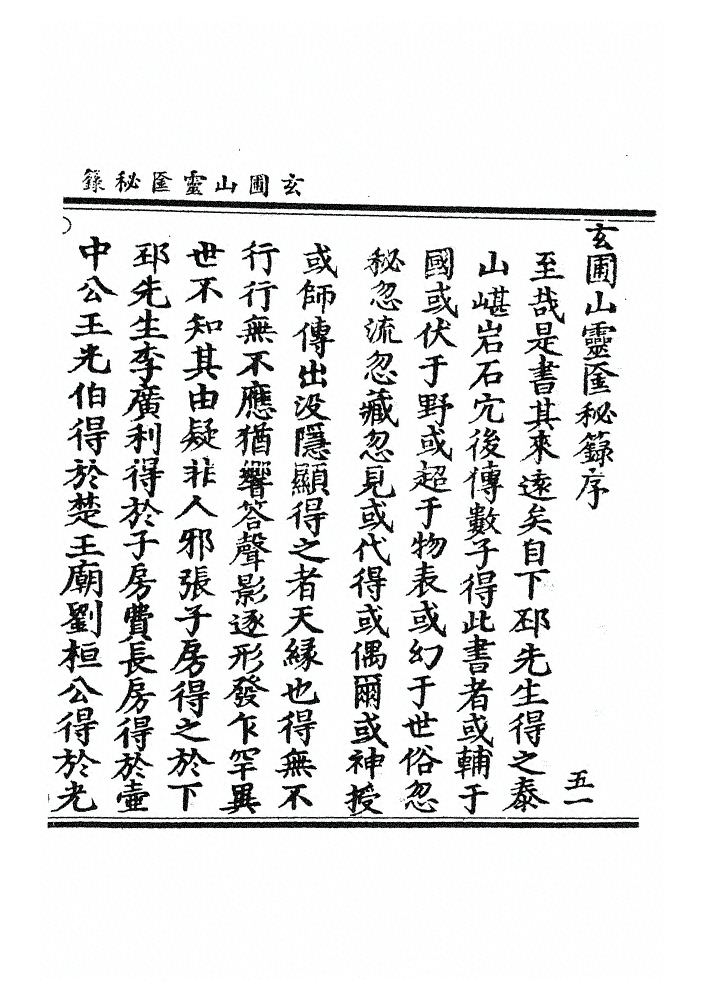 玄圃山靈匯秘籙
玄圃山靈匯秘籙序
至哉是書其來遠矣自下邳先生得之泰
山嵁岩石宂後傳數子得此書者或輔于
國或伏于野或超于物表或幻于世俗忽
秘忽流忽藏忽見或代得或偶爾或神授
或師傳出没隱顯得之者天緣也得無不
行行無不應猶響答聲影逐形發乍罕異
世不知其由疑非人邪張子房得之於下
邳先生李廣利得於子房費長房得於壷
中公王光伯得於楚王廟劉桓公得於光
五一